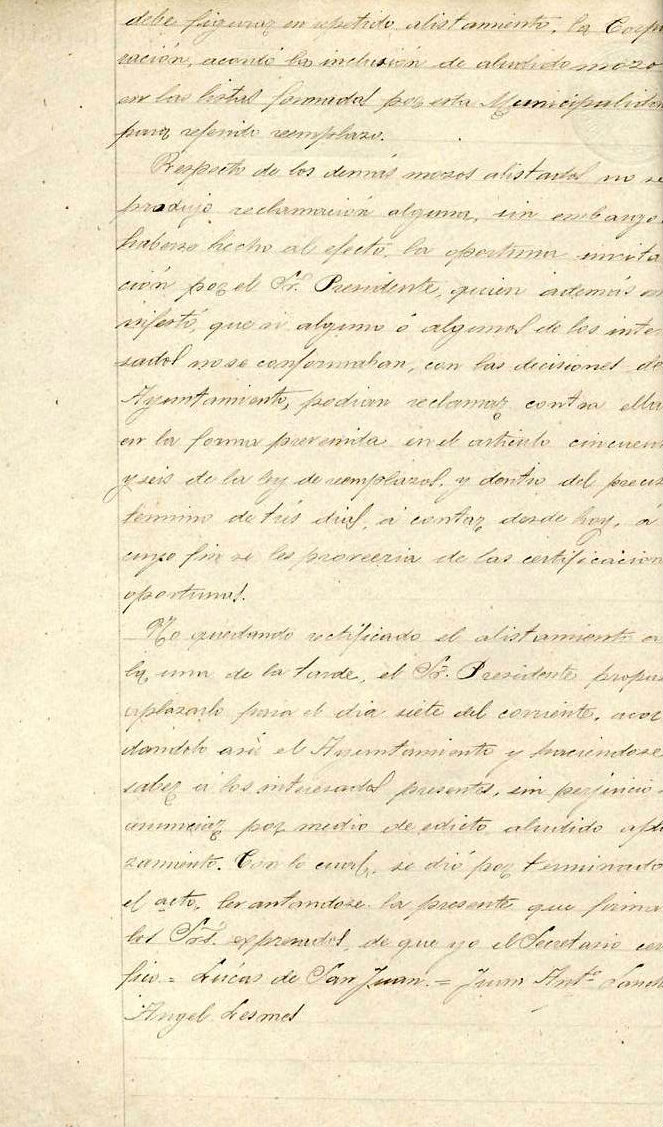 debe figurar en repetido alistamiento, la Corpo
ración, acordó la inclusión de aludido mozo
en las listas formadas por esta Municipalida
para referido reemplazo.
Respecto de los demás mozos alistados no se
produjo reclamación alguna, sin embargo
haberse hecho al efecto, la oportuna invita
ción por el Sr. Presidente, quien además ma
nifestó, que si alguno ó algunos de los inte
sados no se conformaban, con las decisiones de
Ayuntamiento, podian reclamar contra ella
en la forma prevenida en el articulo cincuen
y seis de la ley de reemplazos, y dentro del preciso
termino de trés dias, á contar desde hoy, á
cuyo fin se les proveeria de las certificacion
oportunas.
No quedando rectificado el alistamiento a
la una de la tarde, el Sr. Presidente propus
aplazarlo para el dia siete del corriente, acor
dándolo asi el Ayuntamiento y haciendose
saber á los interesados presentes, sin perjuicio
anunciar por medio de edicto aludido apla
zamiento. Con lo cual, se dió por terminado
el acto, levantandose la presente que firma
los Srs. expresados, de que yo el Secretario cer
fico = Lucas de San Juan. = Juan Ant.º Sanch
Angel Lesmes